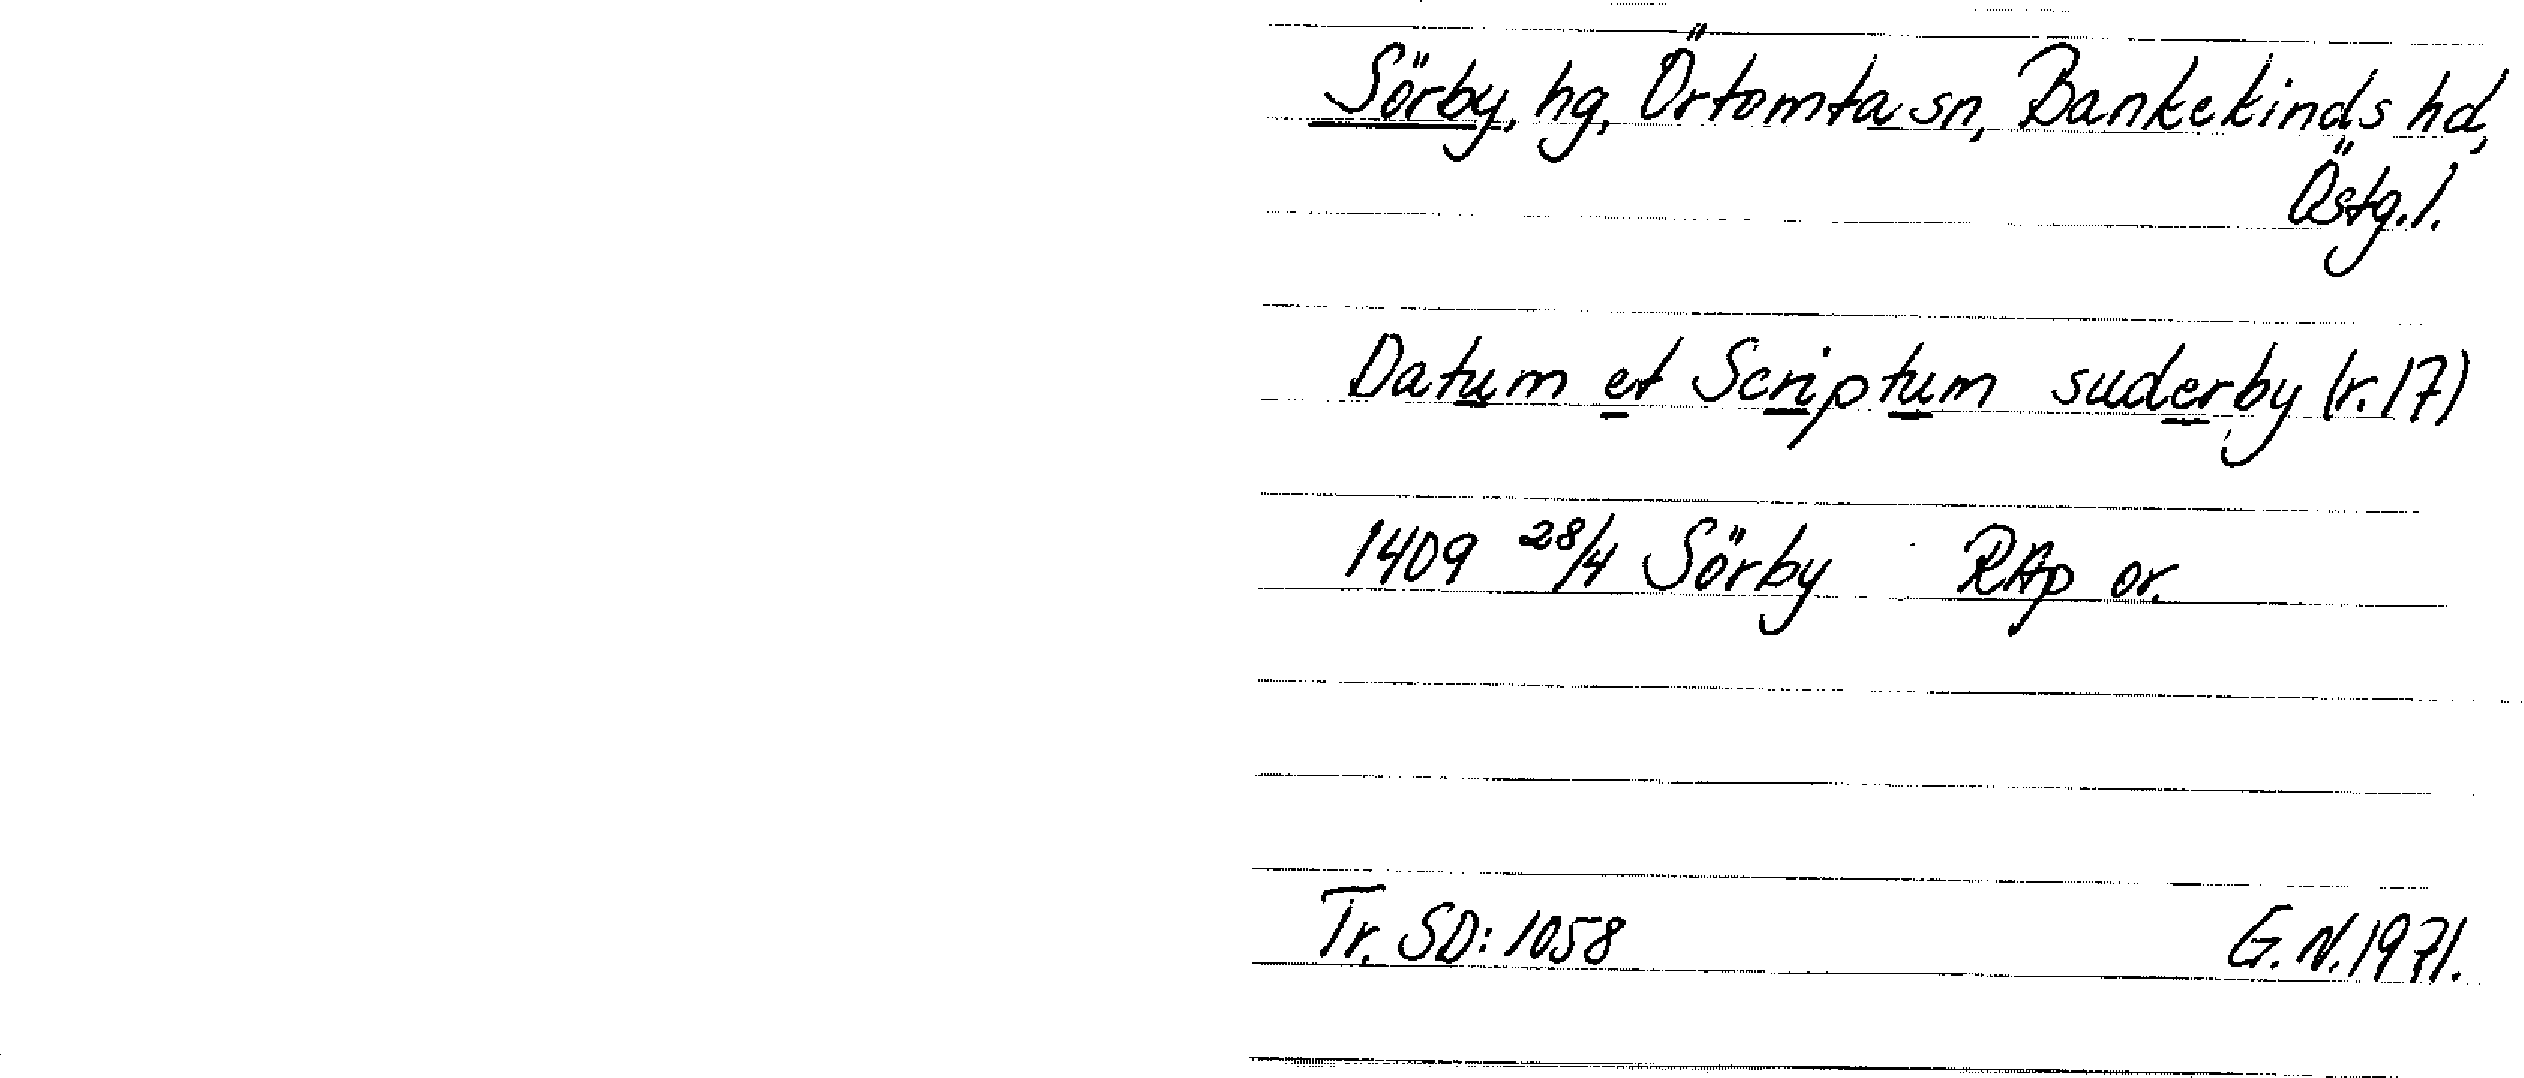 Sörby, hg, Örtomta sn, Bankekinds hd,
Östg.l.
Datum et Scriptum suderby (r.17)
1409 28/4 Sörby RAp or.
Tr. SD: 1058 G.N.1971.